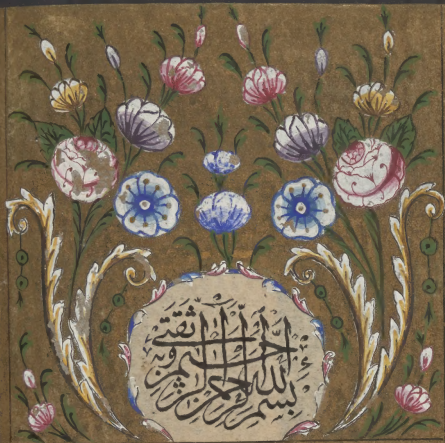 بسم الله الرحمن الرحيم وبه ثقتى